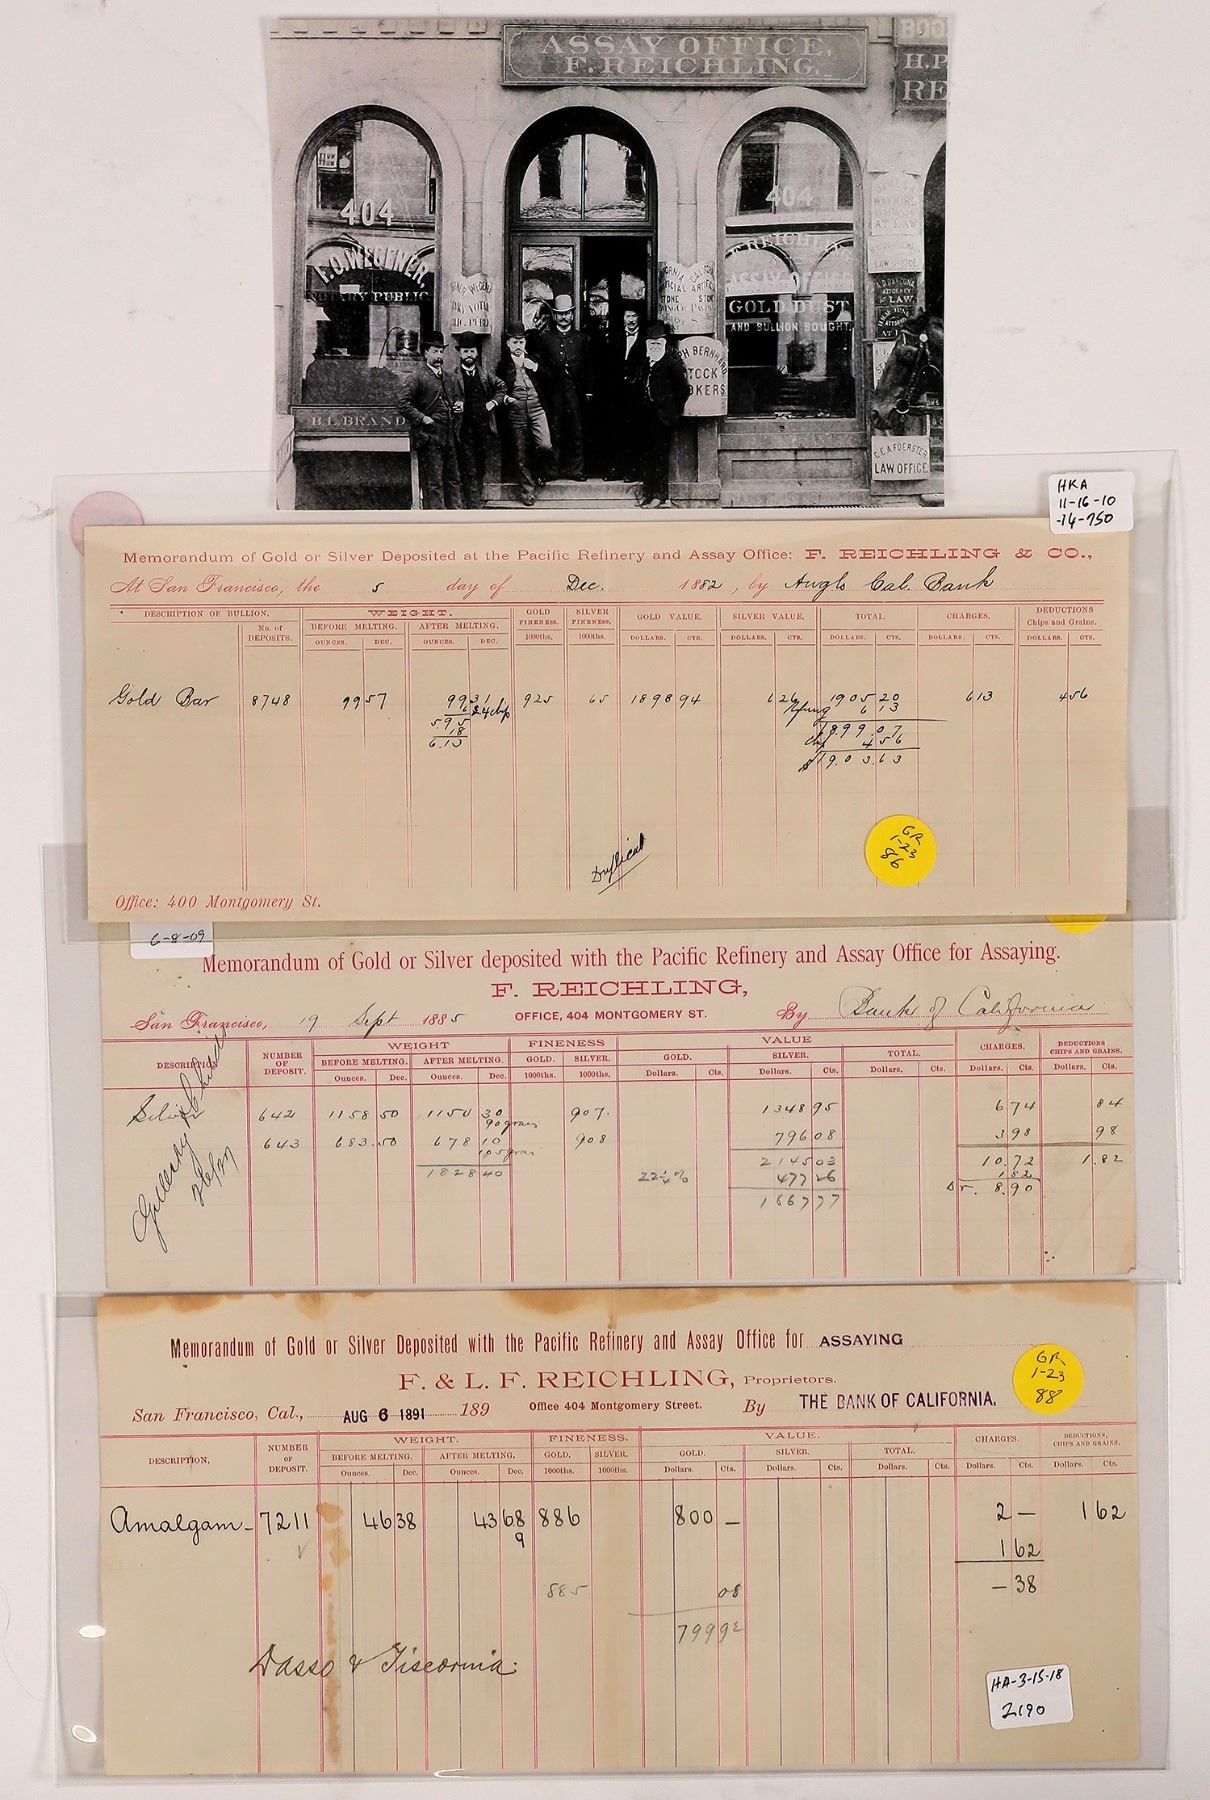 ASSAY OFFICE,
F. REICHLING.
BOO
H.P.
RE
404
F.O. WEGENER,
NOTARY PUBLIC
404
F. REICHLING
ASSAY OFFICE
GOLD DUST
AND BULLION BOUGHT.
AT LAW
LAW OFFICE
ATTORNEY
LAW.
PH BERNHARD
STOCK
OKERS
B.L. BRAND
C.E.A. FOERSTER
LAW OFFICE
HKA
11-16-10
-14-750
Memorandum of Gold or Silver Deposited at the Pacific Refinery and Assay Office: F. REICHLING & CO.,
At San Francisco, the 5 day of Dec. 1882, by Anglo Cal. Bank
DESCRIPTION OF BULLION. No. of DEPOSITS. WEIGHT. GOLD FINENESS. SILVER FINENESS. GOLD VALUE. SILVER VALUE. TOTAL. CHARGES. DEDUCTIONS Chips and Grains.
BEFORE MELTING. AFTER MELTING. 1000ths. 1000ths. DOLLARS. CTS. DOLLARS. CTS. DOLLARS. CTS. DOLLARS. CTS. DOLLARS. CTS.
OUNCES. DEC. OUNCES. DEC.
Gold Bar 8748 99 57 99 31 925 65 1898 94 6 26 1905 20 6 13 4 56
24 chip 6 13
595 1899.07
18 chip 4 56
6.13 $1903.63
Duplicate
GR
1-23
86
Office: 400 Montgomery St.
6-8-09
Memorandum of Gold or Silver deposited with the Pacific Refinery and Assay Office for Assaying.
F. REICHLING,
San Francisco, 19 Sept 1885 OFFICE, 404 MONTGOMERY ST. By Bank of California
DESCRIPTION NUMBER OF DEPOSIT. WEIGHT FINENESS VALUE CHARGES. DEDUCTIONS CHIPS AND GRAINS.
BEFORE MELTING. AFTER MELTING. GOLD. SILVER. GOLD. SILVER. TOTAL.
Ounces. Dec. Ounces. Dec. 1000ths. 1000ths. Dollars. Cts. Dollars. Cts. Dollars. Cts. Dollars. Cts. Dollars. Cts.
Silver 642 1158 50 1150 30 907. 1348 95 6.74 84
90 grains
643 683.50 678 10 908 796 08 3 98 98
105 grains
1828 40 2145 03 10.72 1.82
22¼% 477 26 1 82
1667 77 Dr. 8.90
Memorandum of Gold or Silver Deposited with the Pacific Refinery and Assay Office for ASSAYING
F. & L. F. REICHLING, Proprietors.
San Francisco, Cal., AUG 6 1891 189 Office 404 Montgomery Street. By THE BANK OF CALIFORNIA.
GR
1-23
88
DESCRIPTION, NUMBER OF DEPOSIT. WEIGHT. FINENESS. VALUE. CHARGES. DEDUCTIONS, CHIPS AND GRAINS.
BEFORE MELTING, AFTER MELTING, GOLD. SILVER. GOLD. SILVER. TOTAL.
Ounces. Dec. Ounces. Dec. 1000ths. 1000ths. Dollars. Cts. Dollars. Cts. Dollars. Cts. Dollars. Cts. Dollars. Cts.
Amalgam - 7211 46 38 43 68 886 800 - 2 - 1 62
9 1 62
885 08 - 38
799 92
Dasso & Tiscornia.
HA-3-15-18
2190